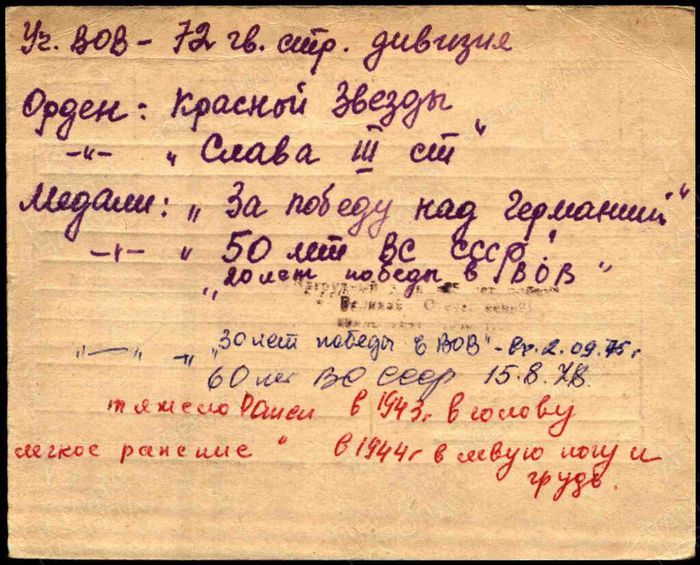 Уч. ВОВ – 72 гв. стр. дивизия
Орден: Красной Звезды
–"– „ Слава III ст"
Медали: „ За победу над Германией"
–"– „ 50 лет ВС СССР"
„ 20 лет победы в ВОВ"
Великой
„–" –"– „30 лет победы в ВОВ" – вр. 2.09.75г
60 лет ВС СССР 15.8.78.
тяжело ранен в 1943г в голову
легкое ранение " в 1944г в левую ногу и
грудь.